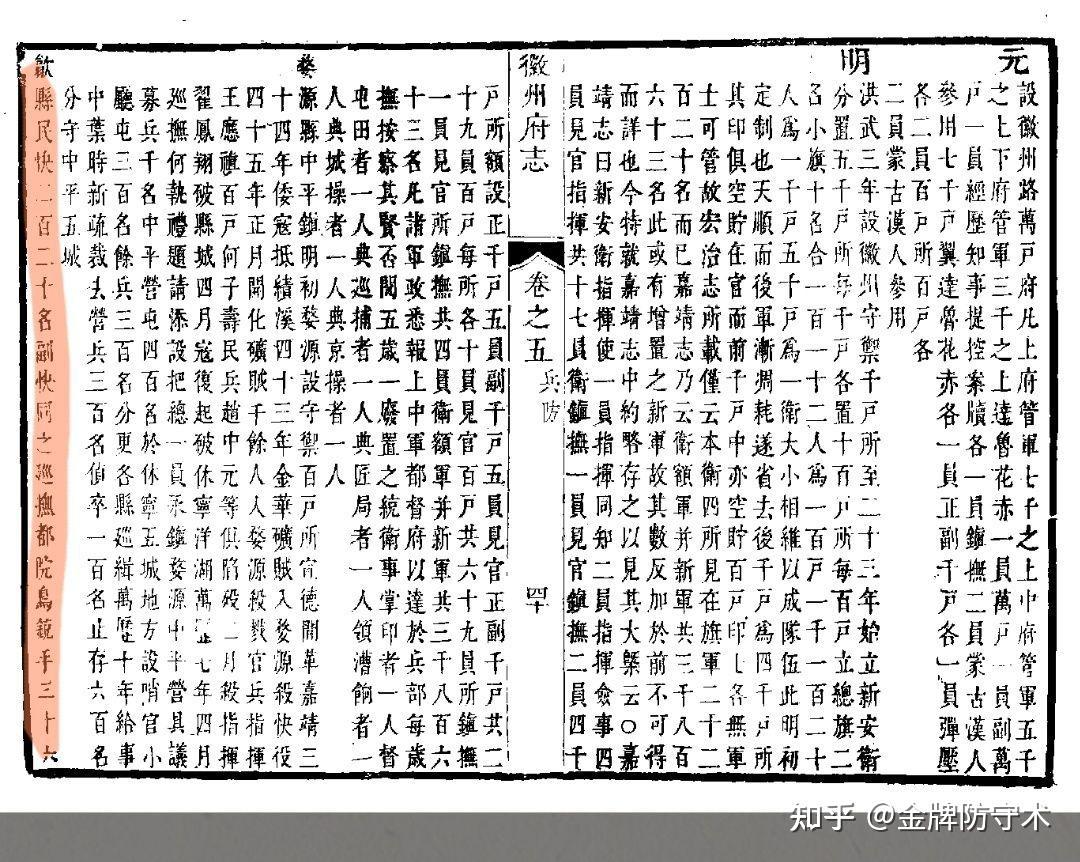 元
設徽州路萬戶府凡上府管軍七千之上中府管軍五千
之上下府管軍三千之上達魯花赤一員萬戶一員副萬
戶一員經歷知事提控案牘各一員鎮撫二員蒙古漢人
參用七千戶翼達魯花赤各一員正副千戶各一員彈壓
各二員百戶所百戶各
二員蒙古漢人參用
明
洪武三年設徽州守禦千戶所至二十三年始立新安衛
分置五千戶所每千戶各置十百戶所每百戶立總旗二
名小旗十名合一百一十二人爲一百戶一千一百二十
人爲一千戶五十戶爲一衛大小相維以成隊伍此明初
定制也天順而後軍漸凋耗遂省去後千戶爲四千戶所
其印俱空貯在官而前千戶中亦空貯百戶印七各無軍
士可管故宏治志所載僅云本衛四所見在旗軍二千二
百二十名而已嘉靖志乃云衛額軍并新軍共三千八百
六十三名此或有增置之新軍故其數反加於前不可得
而詳也今特就嘉靖志中約略存之以見其大槩云○嘉
靖志曰新安衛指揮使一員指揮同知二員指揮僉事四
員見官指揮共十七員衛鎮撫一員見官鎮撫二員四千
徽州府志 卷之五 兵防 四十
戶所額設正千戶五員副千戶五員見官正副千戶共二
十九員百戶每所各十員見官百戶共六十九員所鎮撫
一員見官所鎮撫共四員衛額軍并新軍共三千八百六
十三名凡諸軍政悉報上中軍都督府以達於兵部每歲
撫按察其賢否閱五歲一廢置之統衛事掌印者一人督
屯田者一人典巡捕者一人典匠局者一人領漕餉者一
人典城操者一人典京操者一人
婺
源縣中平鎮明初婺源設守禦百戶所宣德間革嘉靖三
十四年倭寇抵績溪四十三年金華礦賊入婺源殺快役
四十五年正月開化礦賊千餘人入婺源殺戮官兵指揮
王應禎百戶何子壽民兵趙中元等俱陷歿二月殺指揮
翟鳳翔破縣城四月寇復起破休寧洋湖萬歷七年四月
巡撫何執禮題請添設把總一員永鎮婺源中平營其議
募兵千名中平營屯四百名於休寧五城地方設哨官小
廳屯三百名餘兵三百名分更各縣巡緝萬歷十年給事
中葉時新疏裁去營兵三百名偵卒一百名止存六百名
分守中平五城
歙縣民快二百二十名副快同之巡撫都院鳥銃手三十六
知乎 @金牌防守术